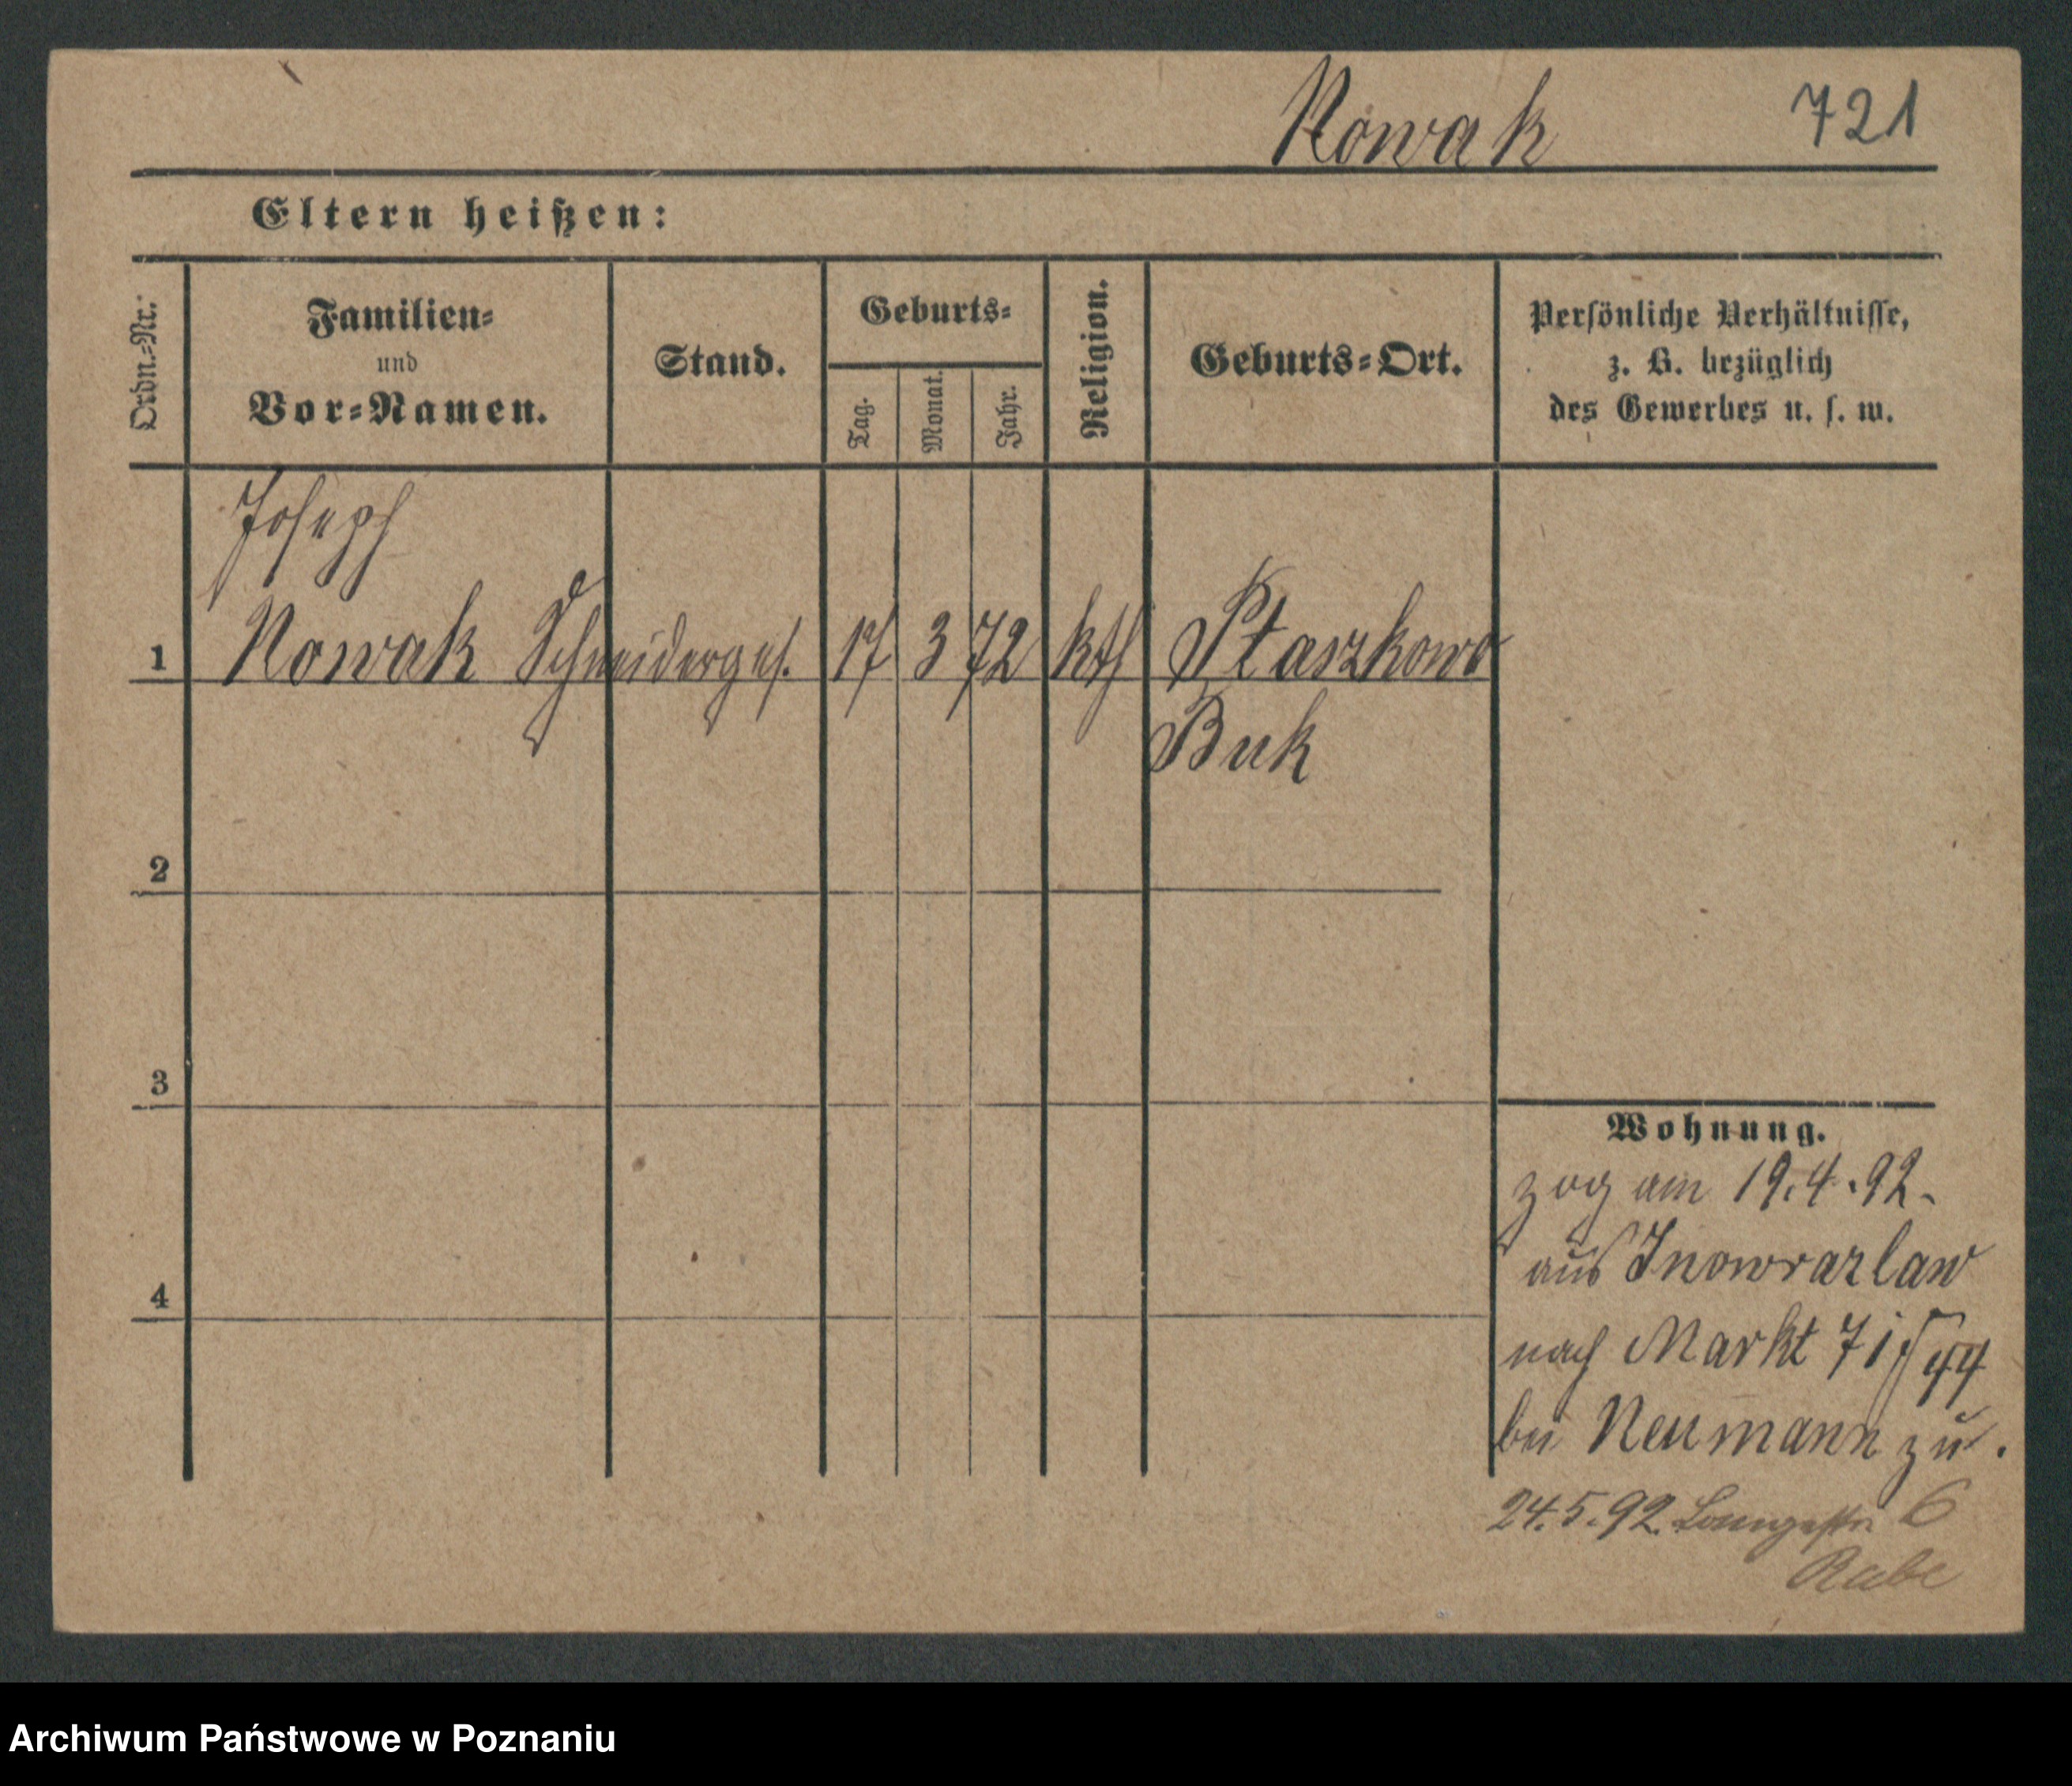 Nowak 721
Eltern heißen:
Ordn.-Nr. Familien- und Vor-Namen. Stand. Geburts- Tag. Monat. Jahr. Religion. Geburts-Ort. Persönliche Verhältnisse, z. B. bezüglich des Gewerbes u. s. w.
Joseph
1 Nowak Schneiderges. 17 3 72 kth Ptaszkowo
Buk
2
3
4
Wohnung.
zog am 19.4.92.
aus Inowrazlaw
nach Markt 71
bei Neumann zu.
24.5.92. Langestr. 6
Rabe
Archiwum Państwowe w Poznaniu